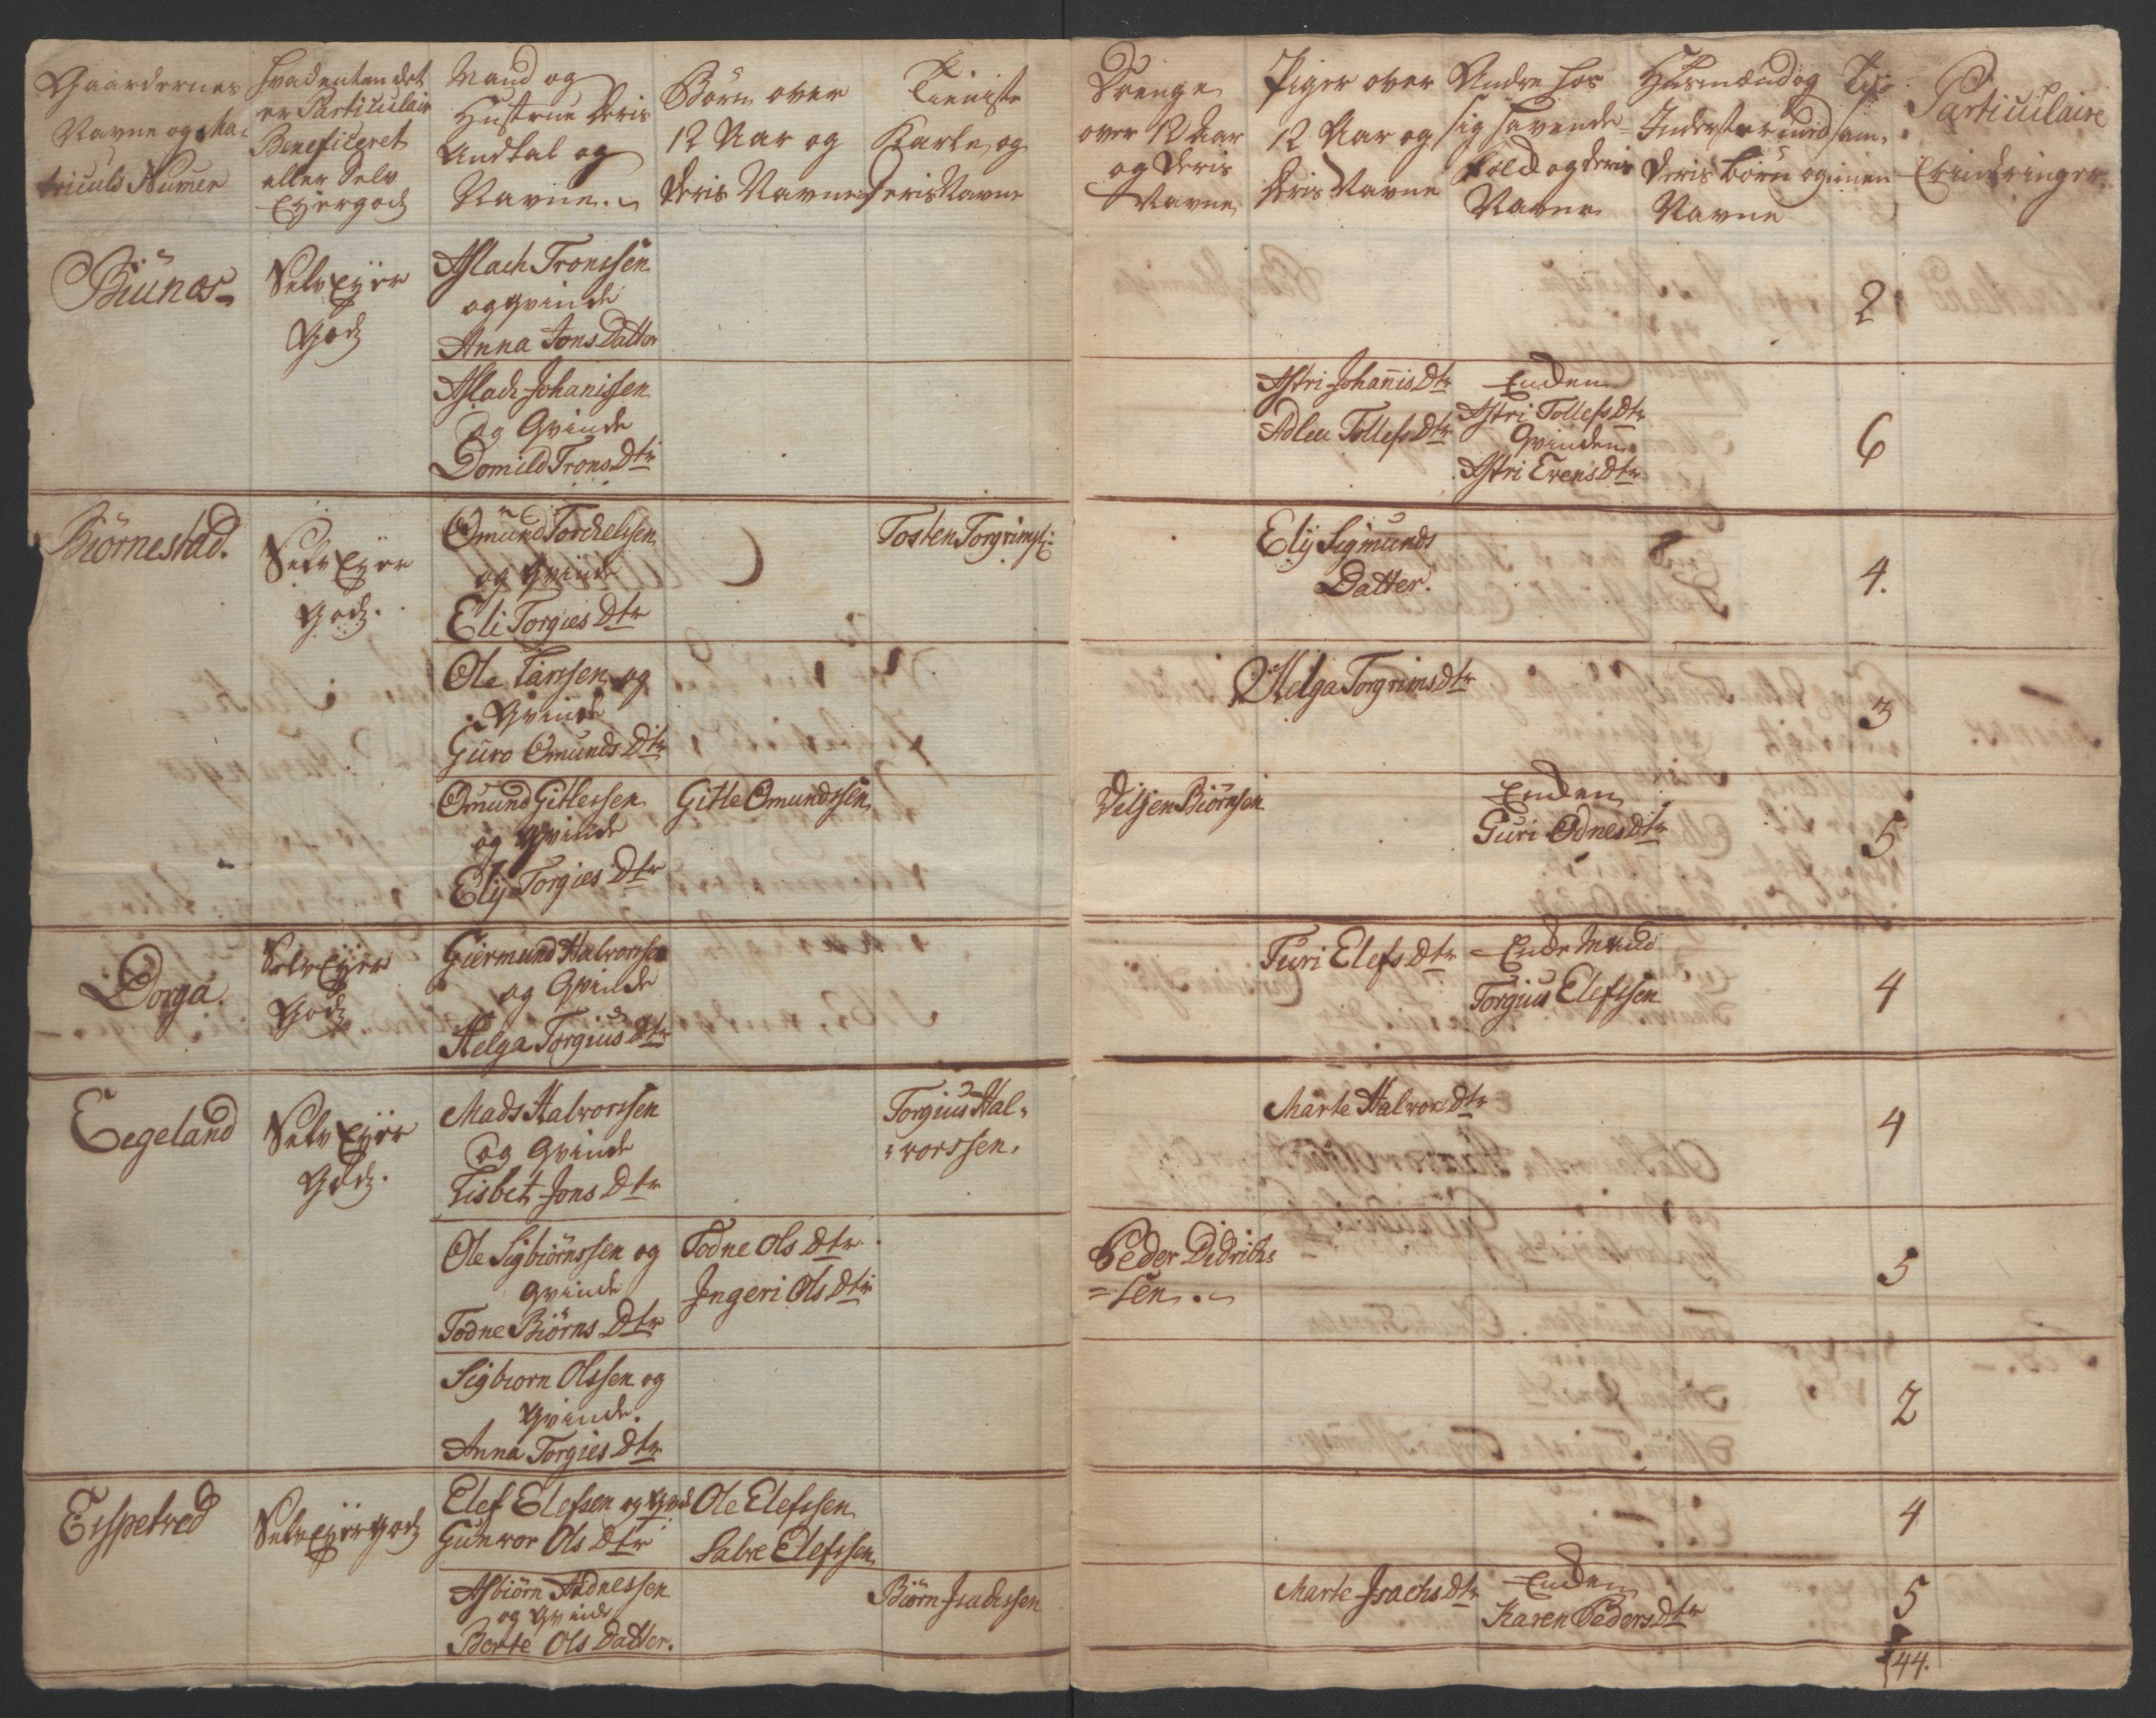 Gaardernes
Navne og Ma-
triculs Numer
Hvad enten det
er Particulair
Beneficeret
eller Selv
Eyergods
Mand og
Hustrue deris
Andtal og
Navne.
Börn over
12 Aar og
deris Navne
Tieniste
Karle og
deris Navne
Drenge
over 12 Aar
og deris
Navne
Piger over
12 Aar og
deris Navne
Andre hos
sig havende
fold og deris
Navne
Husmænd og
Inderster med
deris börn og
Navne
sam-
men
Particulaire
Erindringer
Biunes
Selv Eyer
Gods
Aslach Tronssen
og qvinde
Anna Jons Datter
2
Aslach Johanissen
og Qvinde
Domild Trons Dtr
Astri Johanis Dtr
Adleu Tollefs Dtr
Enden
Astri Tollefs Dtr
Qvinden
Astri Evens Dtr
6
Biörnestad.
Selv Eyer
Gods.
Omund Torchelssen
og Qvinde
Eli Torgies Dtr
Tosten Torgrims:
Elij Sigmunds
Datter.
4.
Ole Larssen og
Qvinde
Guro Omunds Dtr
Helga Torgrims dtr
3
Omund Gitlessen
og Qvinde
Elij Torgies Dtr
Gitle Omundssen
Viljen Biörnsen
Enden
Guri Odnes Dtr
5
Dorga.
Selv Eyer
Gods
Giermund Halvorssen
og Qvinde
Helga Torgius Dtr
Turi Elefs Dtr
Ende Mand
Torgius Elefssen
4
Eegeland
Selv Eyer
Gods.
Mads Halvorssen
og Qvinde
Lisbet Jons Dtr
Torgius Hal-
vorssen.
Marte Halvors Dtr
4
Ole Sigbiörnssen og
Qvinde
Todne Biörns Dtr
Todne Ols Dtr.
Ingeri Ols Dtr
Peder Didrichs
=sen.
5
Sigbiorn Olssen og
Qvinde.
Anna Torgies Dtr
2
Espetved
Selv Eyer Gods
Elef Elefsen og Qvi
Gunvor Ols Dtr
Ole Elefssen
Salve Elefssen
4
Asbiörn Adnessen
og Qvinde
Berte Ols Datter.
Biörn Isachssen
Marte Isachs Dtr
Enden
Karen Peders Dtr
5
44.